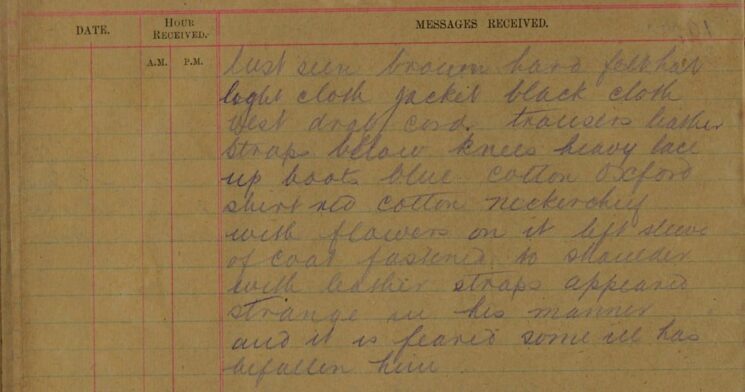 DATE.
HOUR RECEIVED.
MESSAGES RECEIVED.
A.M. P.M.
last seen brown hard felt hat
light cloth jacket black cloth
vest drab cord trousers leather
straps below knees heavy lace
up boots blue cotton Oxford
shirt red cotton neckerchief
with flowers on it left sleeve
of coat fastened to shoulder
with leather straps appeared
strange in his manner
and it is feared some ill has
befallen him